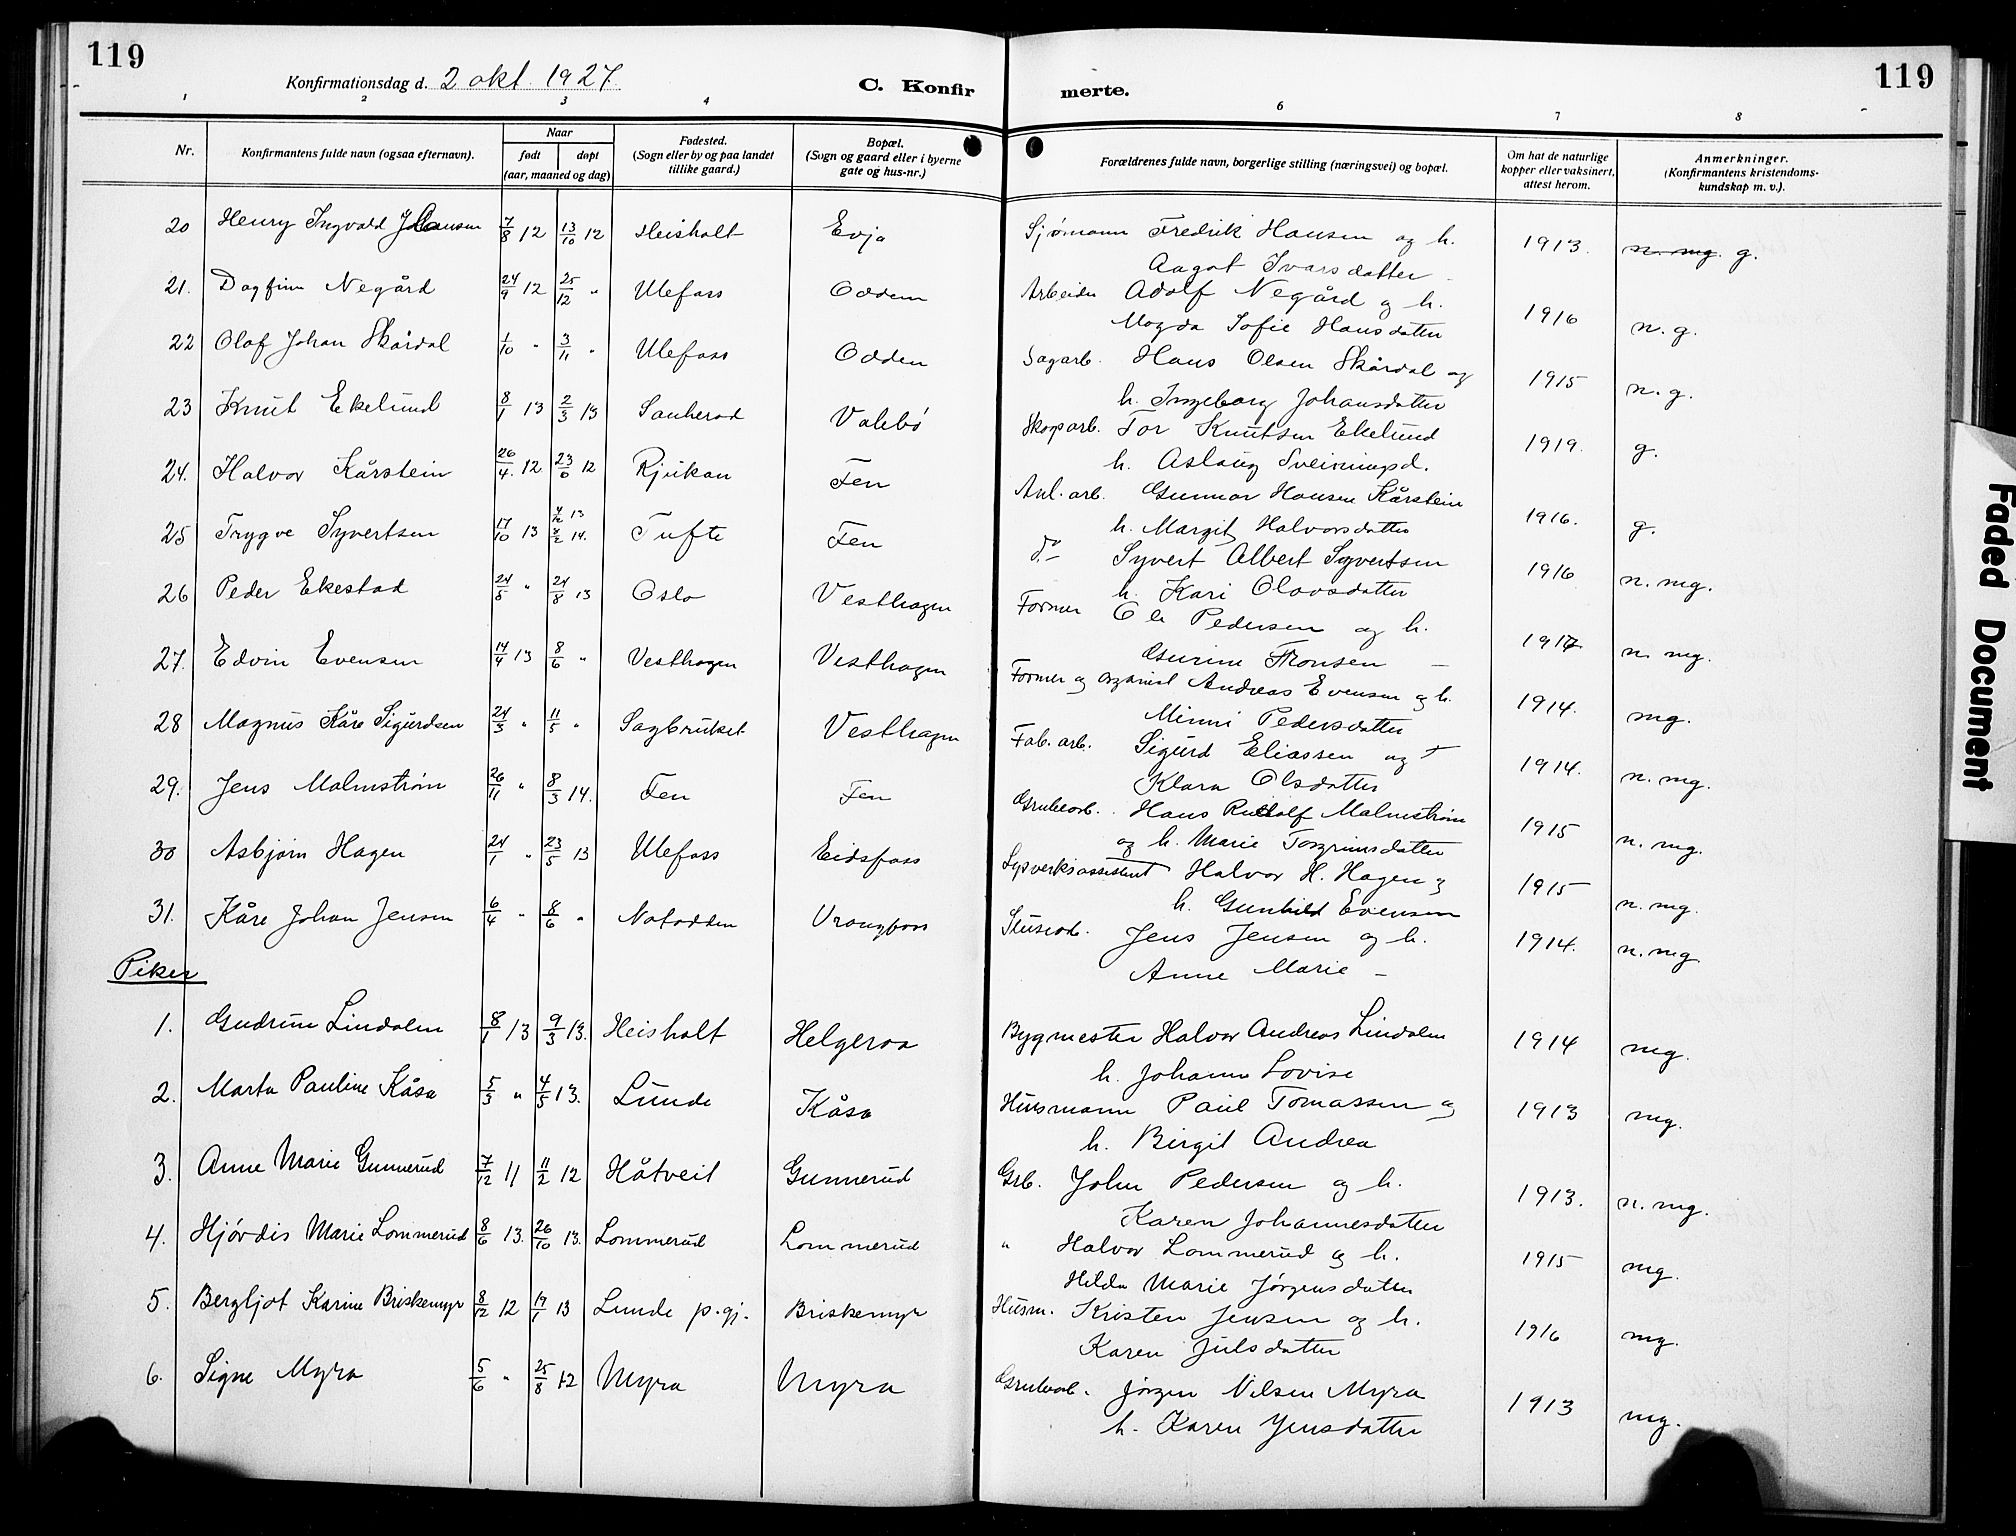 119
Konfirmationsdag d. 2 okt. 1927.
C. Konfirmerte.
119
1 2 3 4 6 7 8
Nr.
Konfirmantens fulde navn (ogsaa efternavn).
Naar
født døpt
(aar, maaned og dag)
Fødested.
(Sogn eller by og paa landet
tillike gaard.)
Bopæl.
(Sogn og gaard eller i byerne
gate og hus-nr.)
Forældrenes fulde navn, borgerlige stilling (næringsvei) og bopæl.
Om hat de naturlige
kopper eller vaksinert,
attest herom.
Anmerkninger.
(Konfirmantens kristendoms-
kundskap m. v.).
20 Henry Ingvald Hansen 7/8 12 13/10 12 Heisholt Evja Sjømann Fredrik Hansen og h. 1913. n. mg. g.
Aagot Ivarsdatter
21. Dagfinn Negård 24/9 12 25/12 " Ulefoss Odden Arbeider Adolf Negård og h. 1916 n. g.
Magda Sofie Hansdatter
22 Olaf Johan Skårdal 1/10 " 3/11 " Ulefoss Odden Sagarb. Hans Olsen Skårdal og 1915 n. g.
h. Ingeborg Johansdatter
23 Knut Ekelund 8/1 13 2/3 13 Sauherad Valebø Skogsarb. Tor Knutsen Ekelund 1919. g.
h. Aslaug Sveinungsd.
24. Halvor Kårstein 26/4. 12 23/6 12 Rjukan Fen Anl. arb. Gunnar Hansen Kårstein 1916. g.
h. Margit Halvorsdatter
25 Trygve Syvertsen 17/10 13 14. Tufte Fen do Syvert Albert Syvertsen 1916 n. mg.
h. Kari Olavsdatter
26 Peder Ekestad " 24/8 13 Oslo Vesthagen Former Ole Pedersen og h. 1917 n. mg.
Gurine Tronsen
27. Edvin Evensen 14/4 13 8/6 " Vesthagen Vesthagen Former og organist Andreas Evensen og h. 1914. mg.
Minni Pedersdatter
28 Magnus Kåre Sigurdsen 24/3 " 11/5 " Sagbruket Vesthagen Fab. arb. Sigurd Eliassen og + 1914. n. mg.
Klara Olsdatter
29. Jens Malmstrøm 26/11 " 8/3 14. Fen Fen Grubearb. Hans Rudolf Malmstrøm 1915 n. mg.
og h. Marie Torgrimsdatter
30 Asbjørn Hagen 24/1 " 23/5 13 Ulefoss Eidsfoss Lysverksassistent Halvor H. Hagen og 1915 n. mg.
h. Gunhild Evensen
31. Kåre Johan Jensen 6/4 " 8/6 " Notodden Vrangfoss Slusearb. Jens Jensen og h. 1914. n. mg
Anne Marie –
Piker
1. Gudrun Lindalen 8/1 13 9/3 13. Heisholt Helgeroa Bygmester Halvor Andreas Lindalen 1914 mg.
h. Johanne Lovise
2. Marta Pauline Kåsa 5/3 " 4/5 13. Lunde Kåsa Husmann Paul Tomassen og 1913 mg.
h. Birgit Andrea
3. Anne Marie Gunnerud 7/12 11 11/2 12 Håtveit Gunnerud Grb. John Pedersen og h. 1913. n. mg.
Karen Johannesdatter
4. Hjørdis Marie Lommerud 8/6 13. 26/10 13. Lommerud Lommerud " Halvor Lommerud og h. 1915 mg.
Hilda Marie Jørgensdatter
5. Bergljot Karine Briskemyr 8/12 12 19/1 13 Lunde p.gj. Briskemyr Husm. Kristen Jensen og h. 1916 mg.
Karen Julsdatter
6. Signe Myra 5/6 " 25/8 12 Myra Myra Grubearb. Jørgen Nilsen Myra 1913 mg.
h. Karen Jensdatter
Faded Document